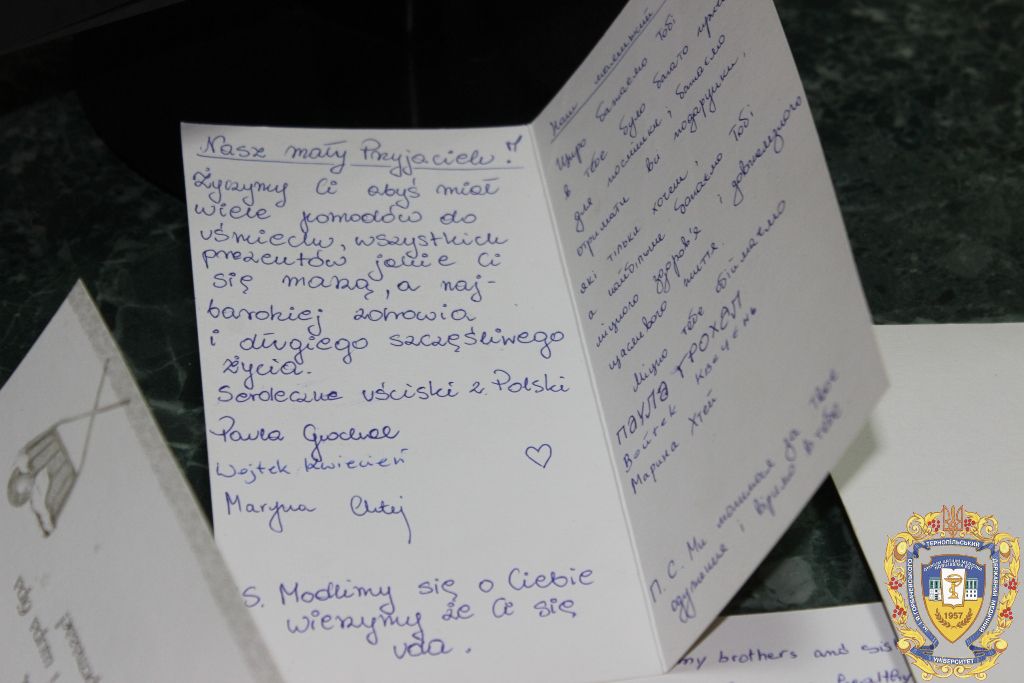 Nasz mały Przyjacielu!
Życzymy Ci abyś miał
wiele powodów do
uśmiechu, wszystkich
prezentów jakie Ci
się marzą, a naj-
bardziej zdrowia
i długiego szczęśliwego
życia.
Serdeczne uściski z Polski
Paula Grochal
Wojtek Kwiecień
Maryna Chtej
S. Modlimy się o Ciebie
wierzymy że Ci się
uda.
Наш маленький
Щиро бажаємо Тобі
в тебе було багато
для посмішки, і бажаємо
отримати всі подарунки,
які тільки хочеш,
а найбільше бажаємо Тобі
міцного здоров'я і довголітнього
щасливого життя.
Міцно тебе обіймаємо
ПАУЛА ГРОХАЛ
Войтек КВЕЧЕНЬ
Марина Хтей
П.С. Ми молимося за твоє
одужання і віримо в тебе
my brothers and sis
healthy
ТЕРНОПІЛЬСЬКИЙ
ДЕРЖАВНИЙ МЕДИЧНИЙ
УНІВЕРСИТЕТ
ІМ. І.Я. ГОРБАЧЕВСЬКОГО
1957